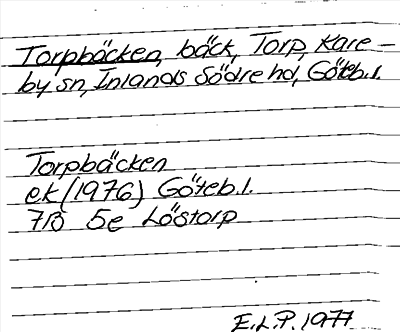 Torpbäcken, bäck, Torp, Kare-
by sn, Inlands Södre hd, Göteb.l.
Torpbäcken
ek (1976) Göteb.l.
7B 5e Löstorp
E.L.P. 1977